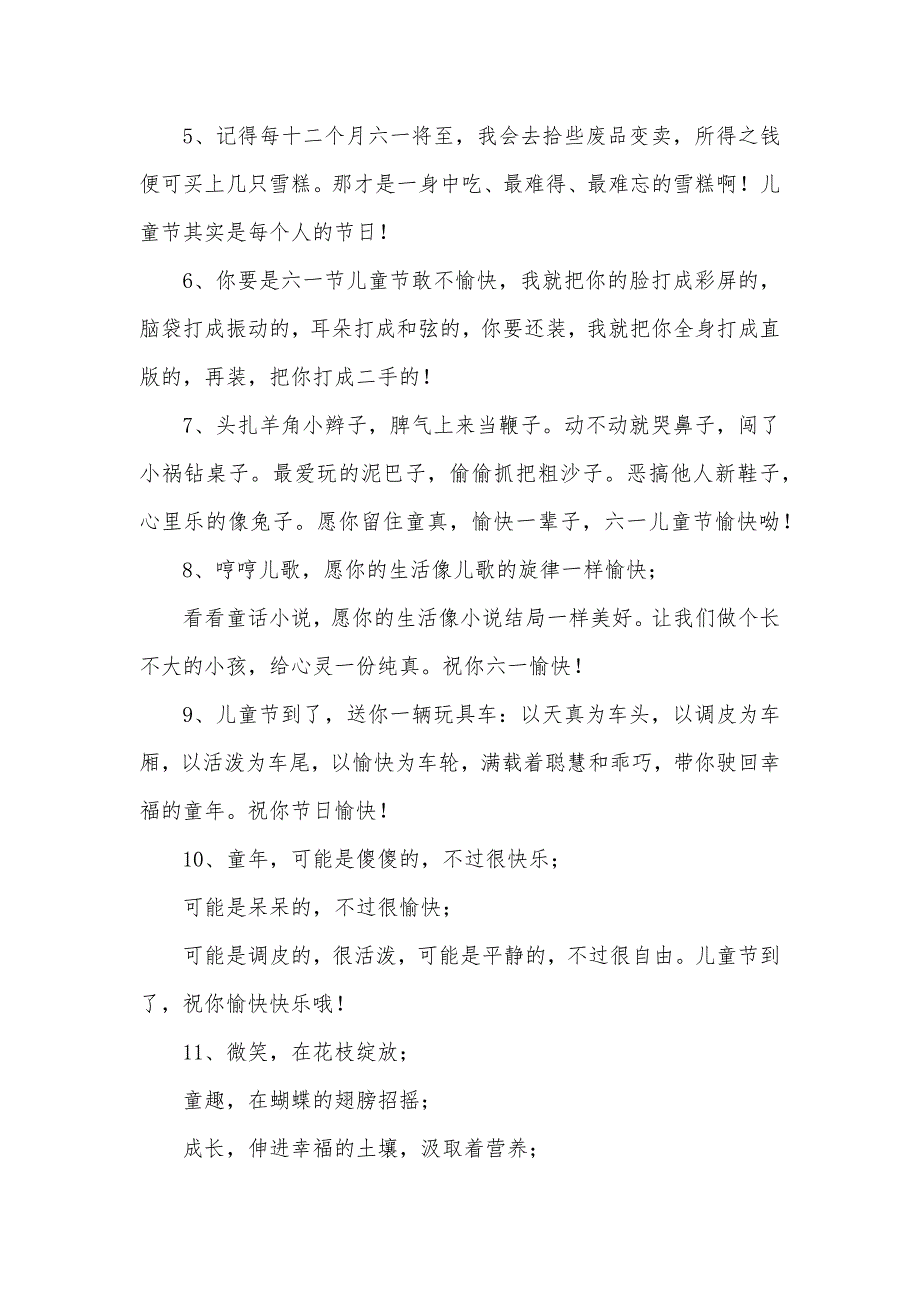 5、记得每十二个月六一将至，我会去拾些废品变卖，所得之钱
便可买上几只雪糕。那才是一身中吃、最难得、最难忘的雪糕啊！儿
童节其实是每个人的节日！
6、你要是六一节儿童节敢不愉快，我就把你的脸打成彩屏的，
脑袋打成振动的，耳朵打成和弦的，你要还装，我就把你全身打成直
版的，再装，把你打成二手的！
7、头扎羊角小辫子，脾气上来当鞭子。动不动就哭鼻子，闯了
小祸钻桌子。最爱玩的泥巴子，偷偷抓把粗沙子。恶搞他人新鞋子，
心里乐的像兔子。愿你留住童真，愉快一辈子，六一儿童节愉快呦！
8、哼哼儿歌，愿你的生活像儿歌的旋律一样愉快；
看看童话小说，愿你的生活像小说结局一样美好。让我们做个长
不大的小孩，给心灵一份纯真。祝你六一愉快！
9、儿童节到了，送你一辆玩具车：以天真为车头，以调皮为车
厢，以活泼为车尾，以愉快为车轮，满载着聪慧和乖巧，带你驶回幸
福的童年。祝你节日愉快！
10、童年，可能是傻傻的，不过很快乐；
可能是呆呆的，不过很愉快；
可能是调皮的，很活泼，可能是平静的，不过很自由。儿童节到
了，祝你愉快快乐哦！
11、微笑，在花枝绽放；
童趣，在蝴蝶的翅膀招摇；
成长，伸进幸福的土壤，汲取着营养；